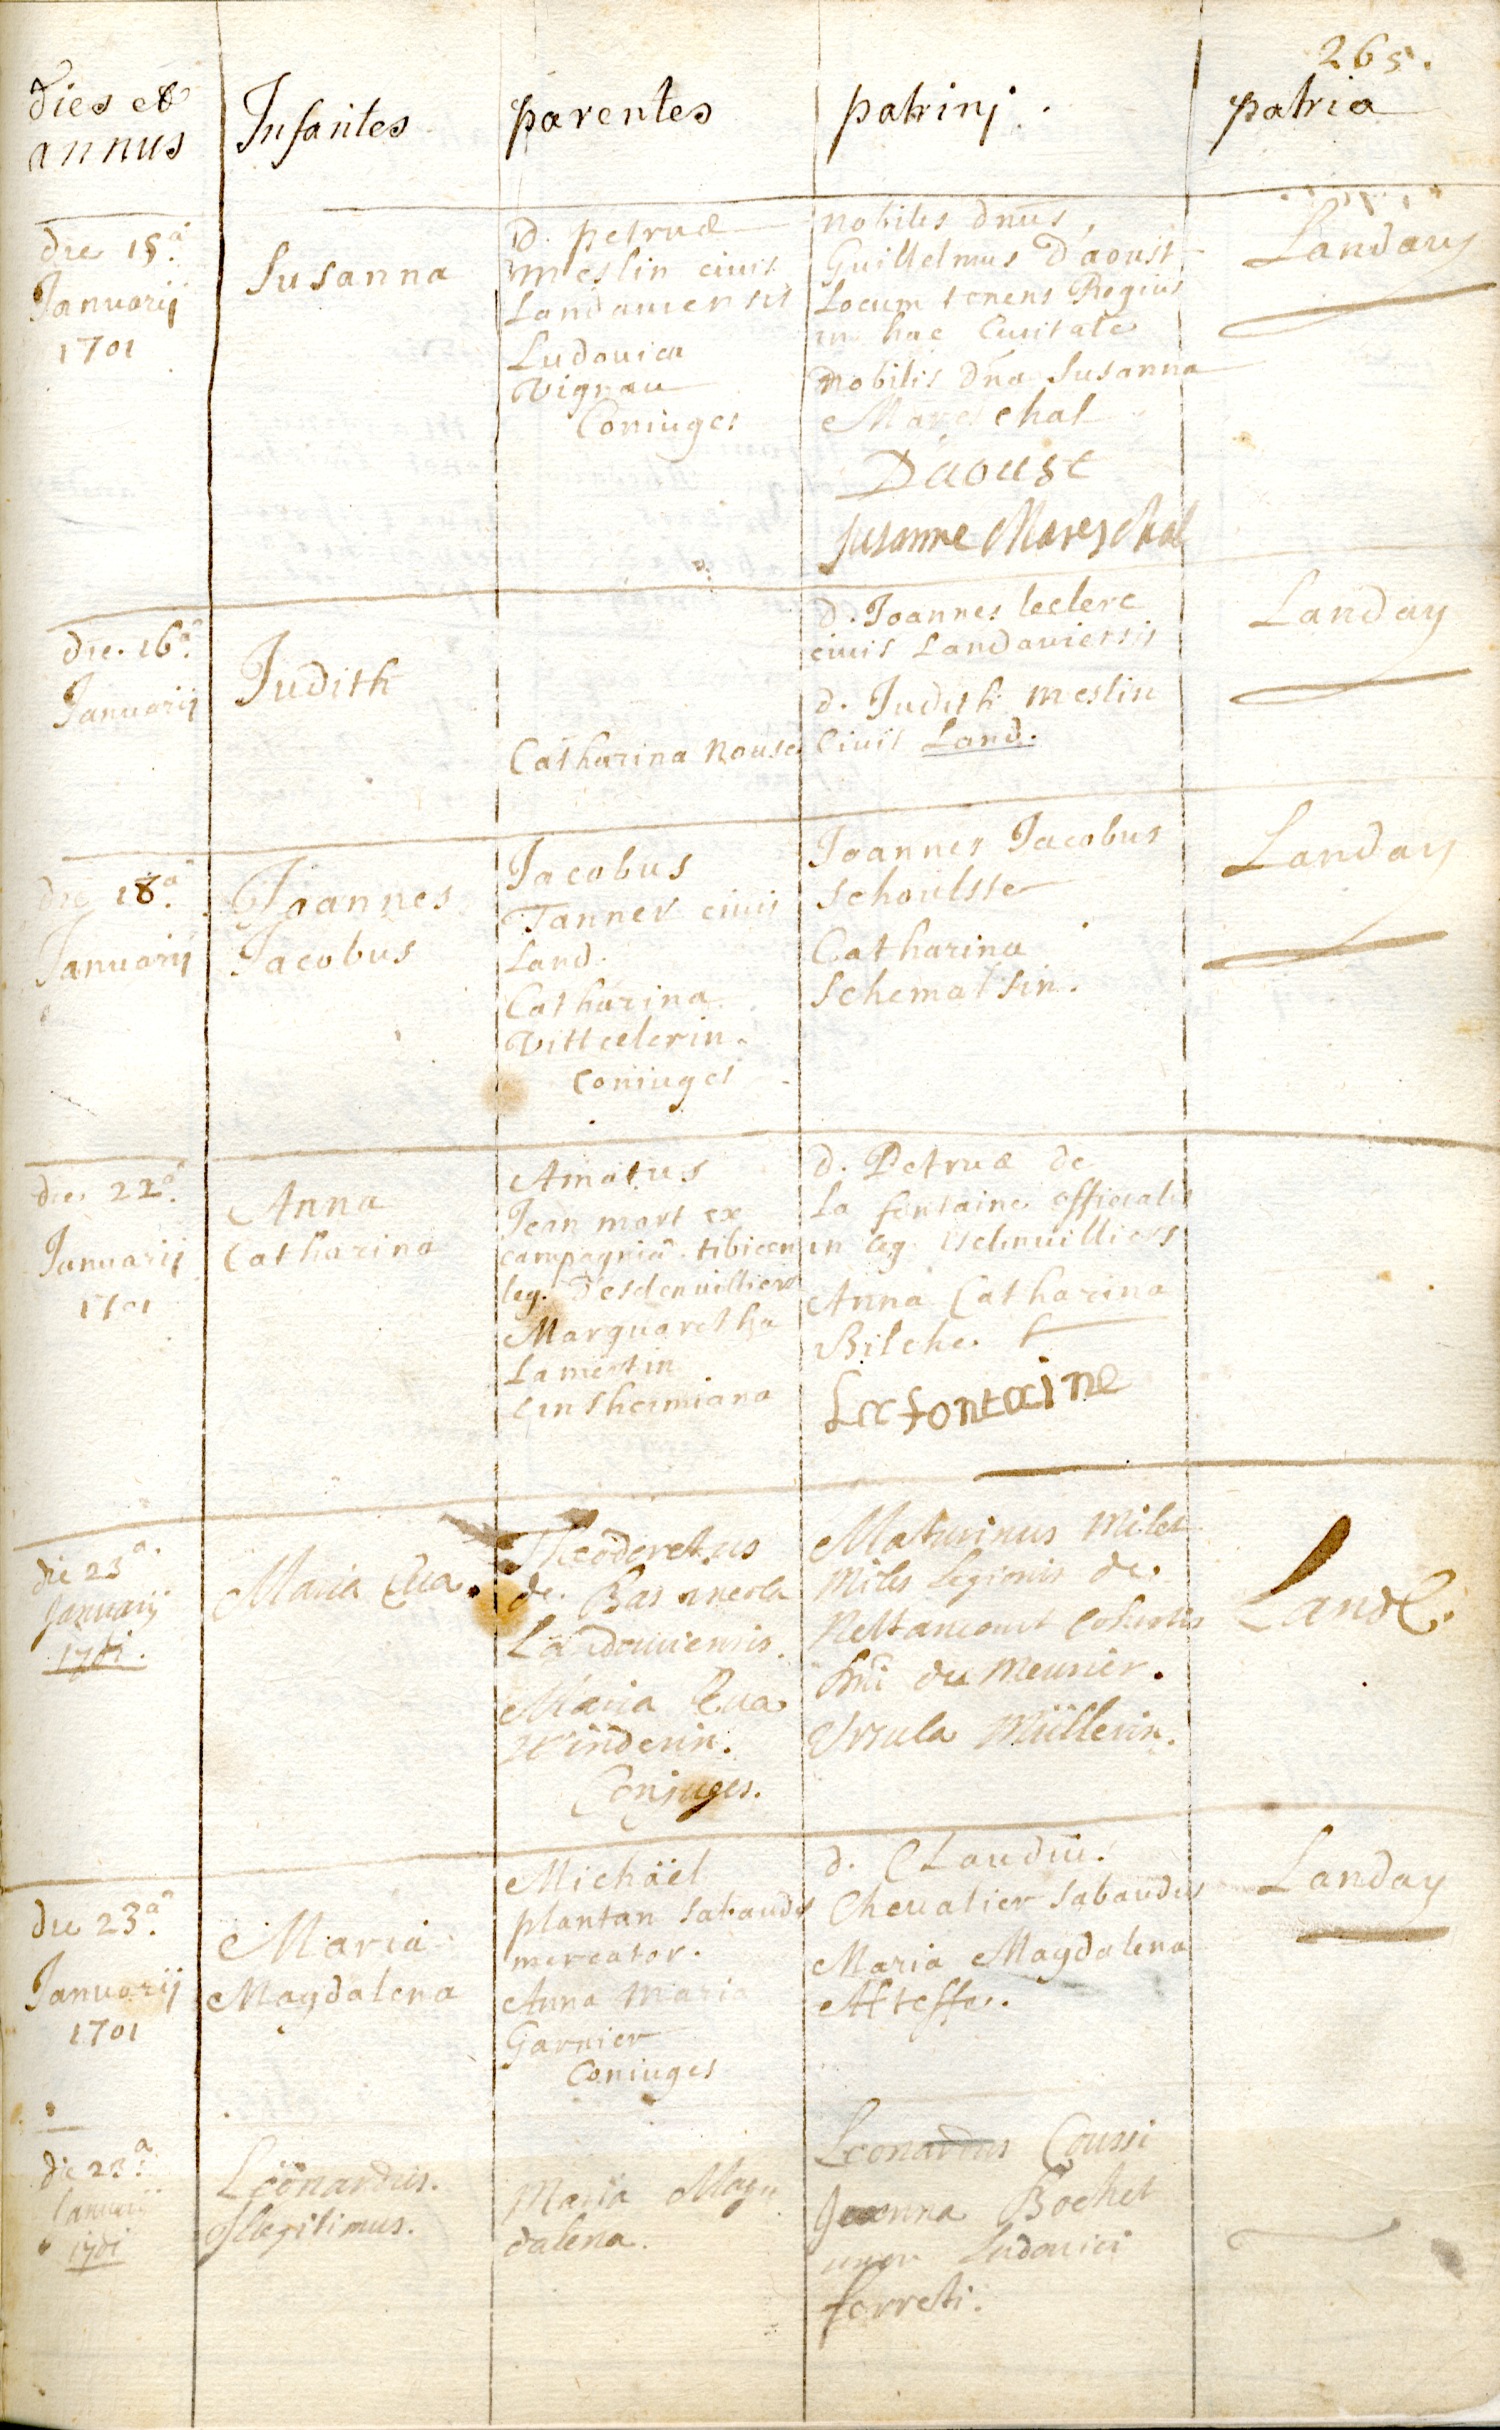 265.
dies et
annus
Infantes
parentes
patrinj.
patria
die 15.ª
Januarij
1701
Susanna
D. petrus
meslin civis
Landaviensis
Ludovica
Vignau
Coniuges
nobilis dnus,
Guillelmus D'aoust
Locum tenens Regius
in hac Civitate
nobilis dna Susanna
Mareschal
D'aoust
susanne Mareschal
Landay
die. 16.ª
Januarij
Judith
Catharina Nouse
d. Joannes leclerc
civis Landaviensis
d. Judith meslin
Civis Land.
Landay
die 18.ª
Januarij
Joannes
Jacobus
Jacobus
Tanner civis
Land.
Catharina
Vittelerin.
coniuges
Joannes Jacobus
Schoultsse
Catharina
Schematsin.
Landay
die 22.ª
Januarij
1701
Anna
Catharina
Amatus
Jean mart ex
campagniâ tibicen
leg. D'esdenvilliers
Marguaretha
Lamertin
d. Petrus de
La fontaine officialis
in leg.
Anna Catharina
Bilche.
Lafontaine
die 23ª.
Januarij
1701.
Maria Eva.
Theodoretus
de.
Landaviensis.
Maria Eva
Winderin.
Conjuges.
Maturinus Milet
Miles Legionis de.
Nettancourt Cohortis
Dni du Meunier.
Ursula Müllerin.
Land.
die 23.ª
Januarij
1701
Maria
Magdalena
Michaël
plantan sabaudus
mercator.
Anna Maria
Garnier
Coniuges
d. Claudiu.
Chevalier Sabaudus
Maria Magdalena
Landay
die 23.ª
Januarij
1701
Leönardus.
Illegitimus.
Maria Mag
dalena.
Leonardus Coussi
Joanna Bochet
uxor Ludovici
forreti.